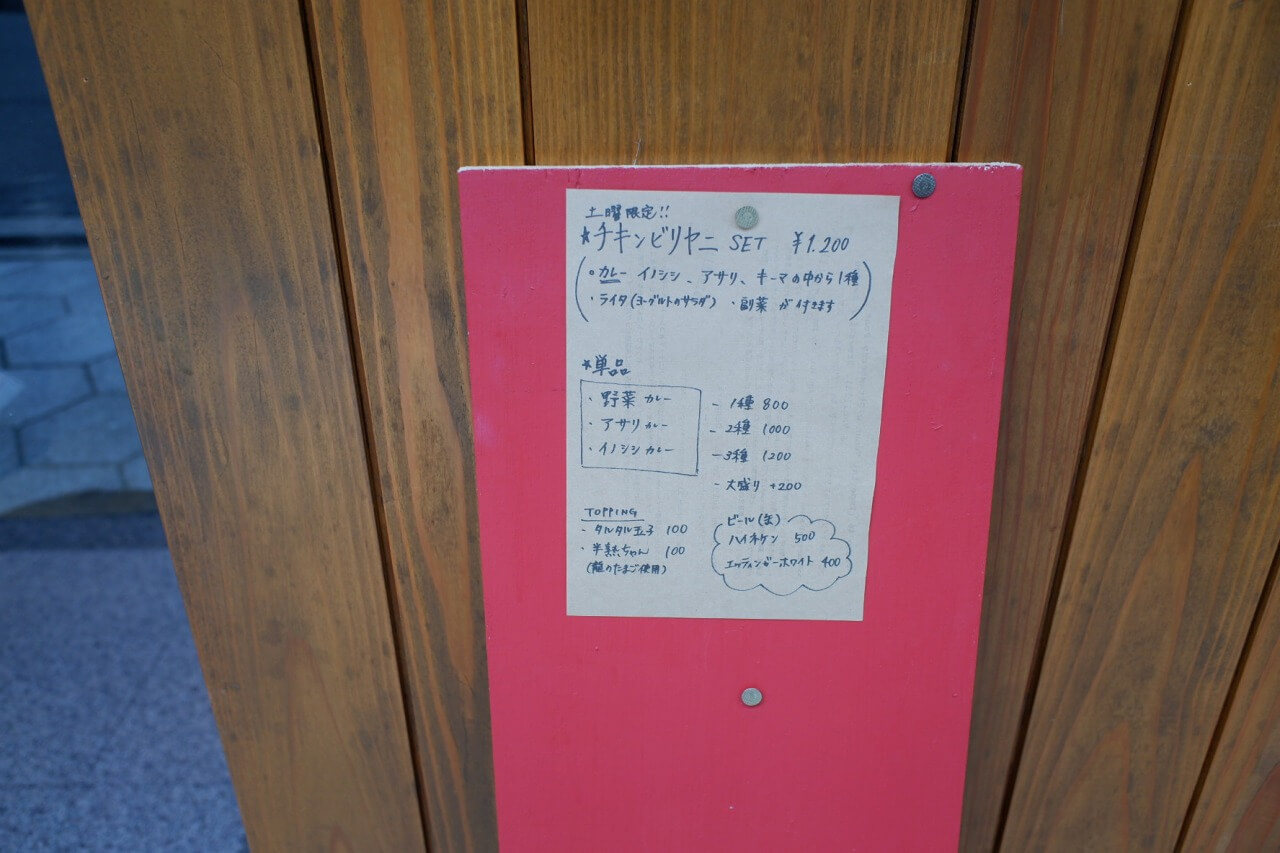 土曜限定!!
★チキンビリヤニ SET ¥1.200
(・カレー イノシシ、アサリ、キーマの中から1種
・ライタ(ヨーグルトのサラダ) ・副菜 が付きます)
★単品
・野菜カレー
・アサリカレー
・イノシシカレー
- 1種 800
- 2種 1000
- 3種 1200
- 大盛り +200
TOPPING
- タルタル玉子 100
・半熟ちゃん 100
(龍のたまご使用)
ビール(缶)
ハイネケン 500
エッティンガーホワイト 400